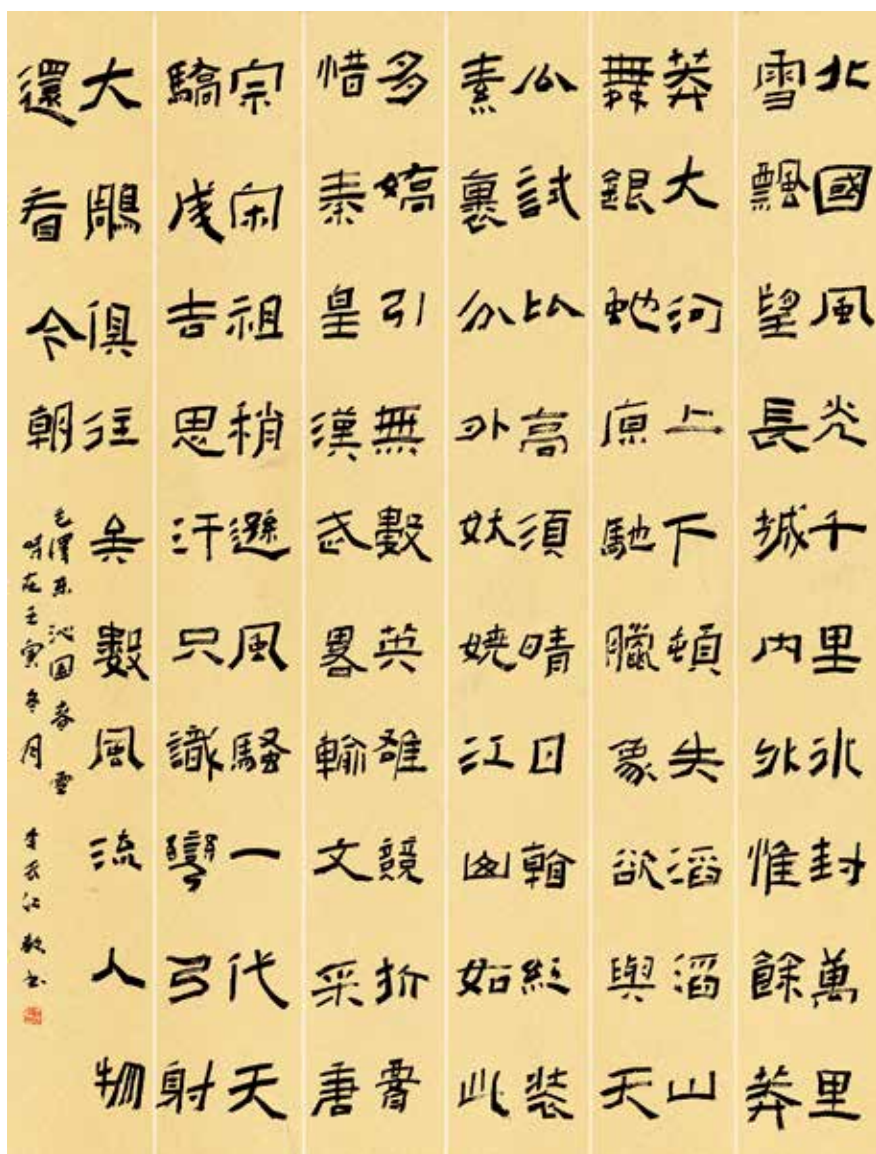 北國風光千里冰封萬里
雪飄望長城內外惟餘莽
莽大河上下頓失滔滔山
舞銀蛇原馳臘象欲與天
公試比高須晴日看紅裝
素裹分外妖嬈江山如此
多嬌引無數英雄競折腰
惜秦皇漢武畧輸文采唐
宗宋祖稍遜風騷一代天
驕成吉思汗只識彎弓射
大鵰俱往矣數風流人物
還看今朝
毛澤東沁园春雪
時在壬寅冬月 李長江敬書